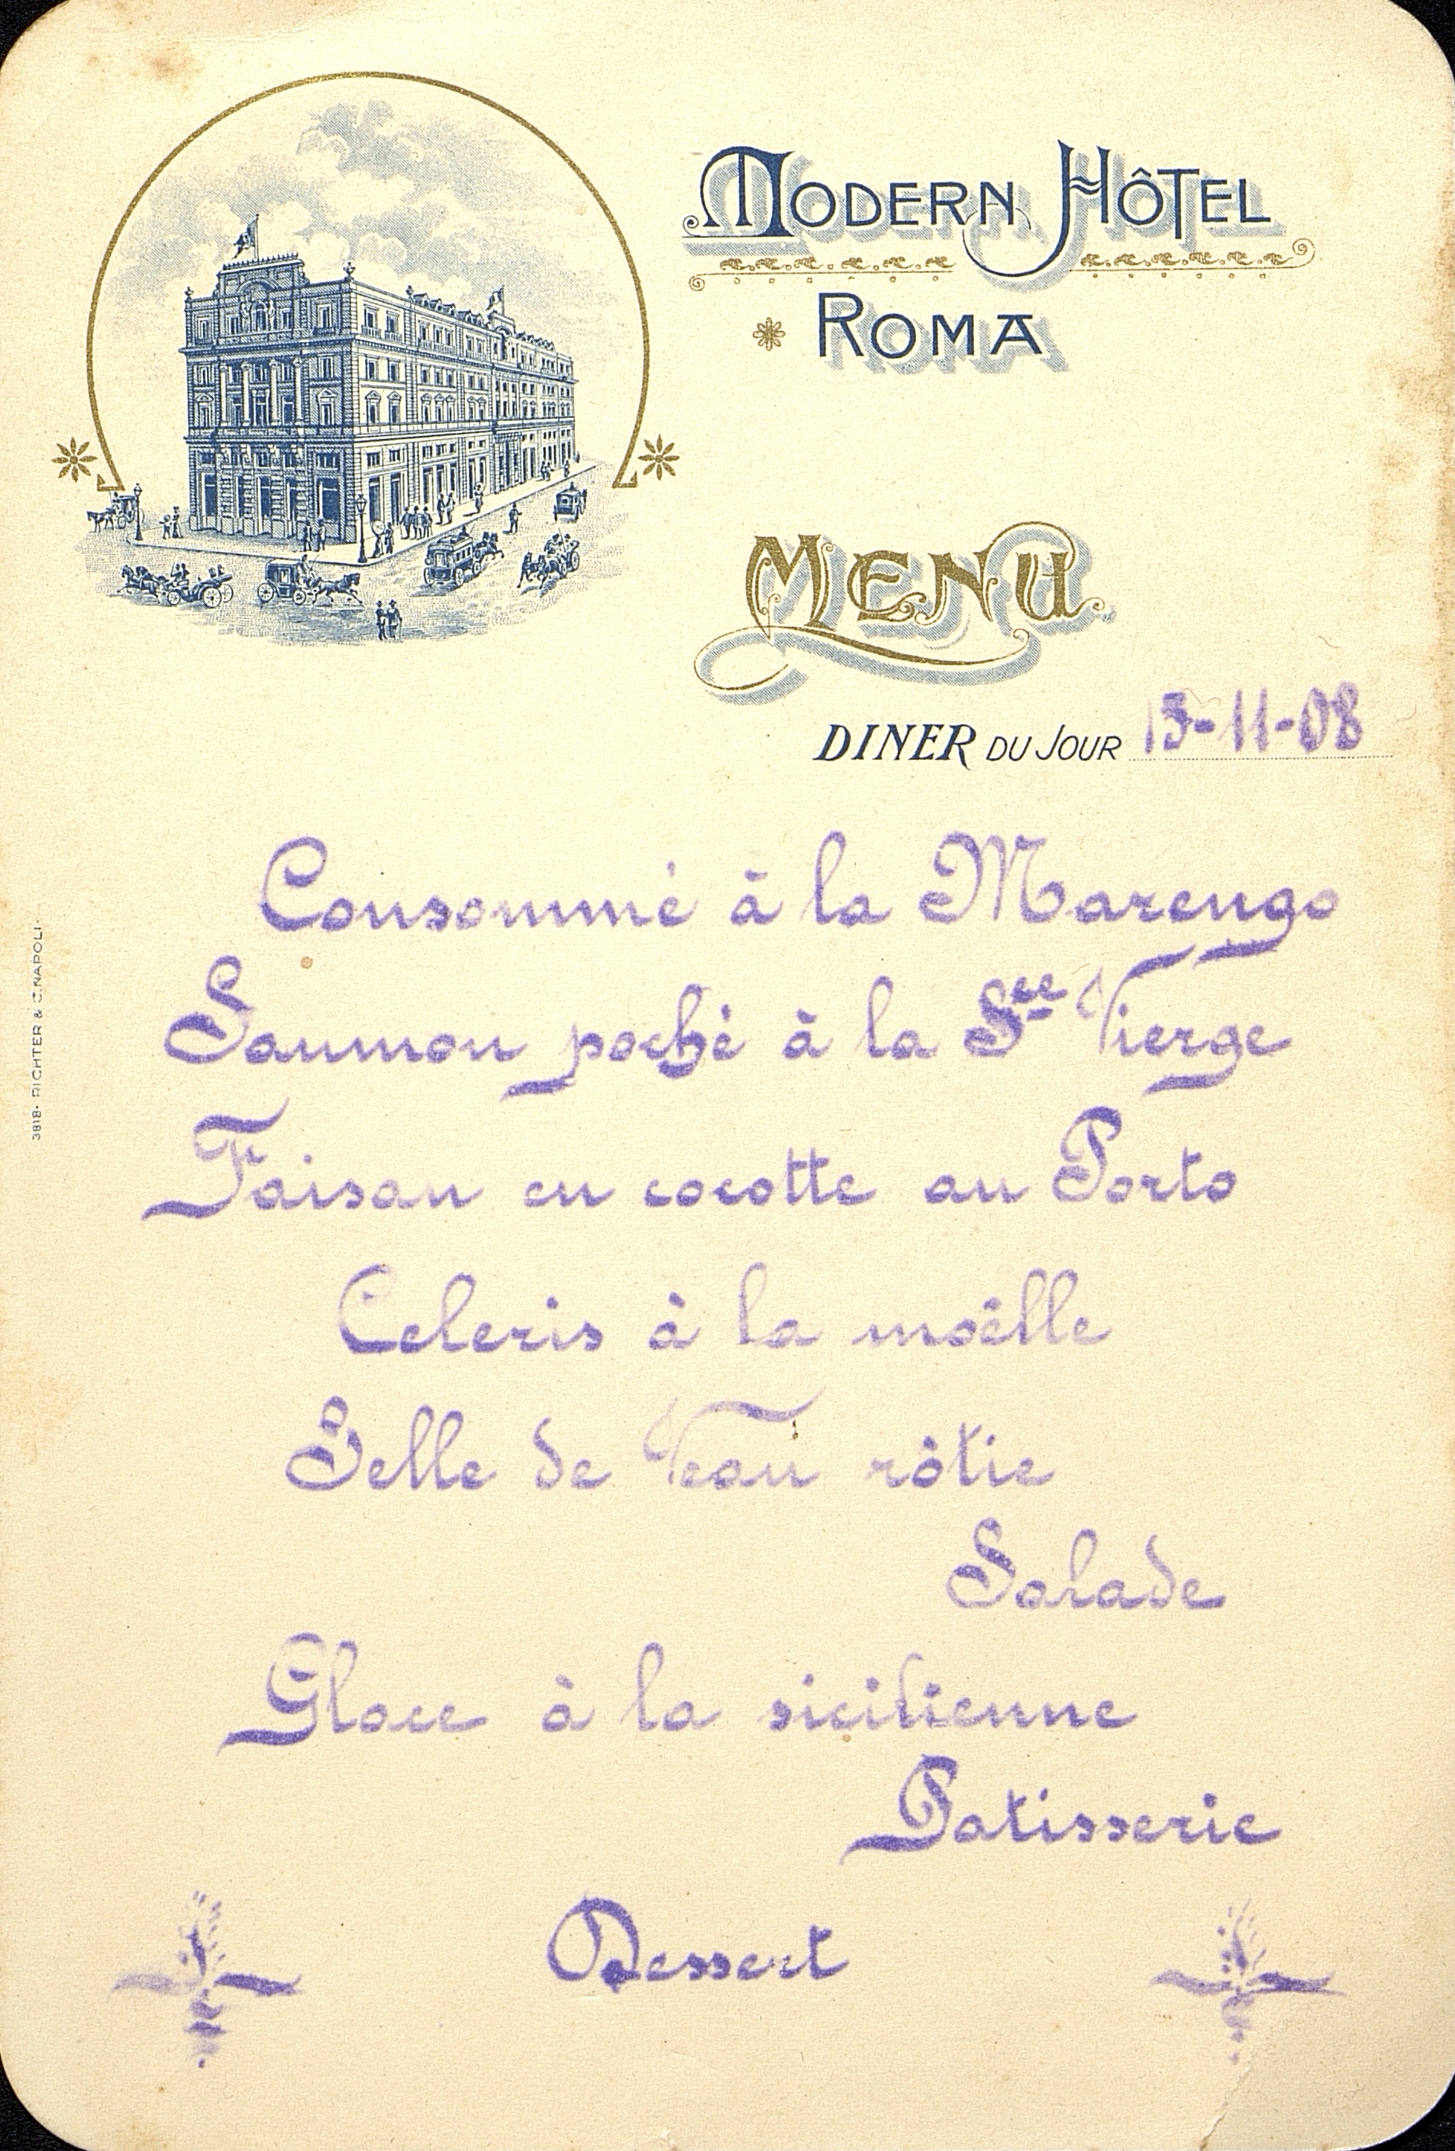 MODERN HÔTEL
ROMA
MENU
DINER DU JOUR 13-11-08
Consommé à la Marengo
Saumon poché à la Sce Vierge
Faisan en cocotte au Porto
Celeris à la moëlle
Selle de Veau rôtie
Salade
Glace à la sicilienne
Patisserie
Dessert
3818- RICHTER & C. NAPOLI